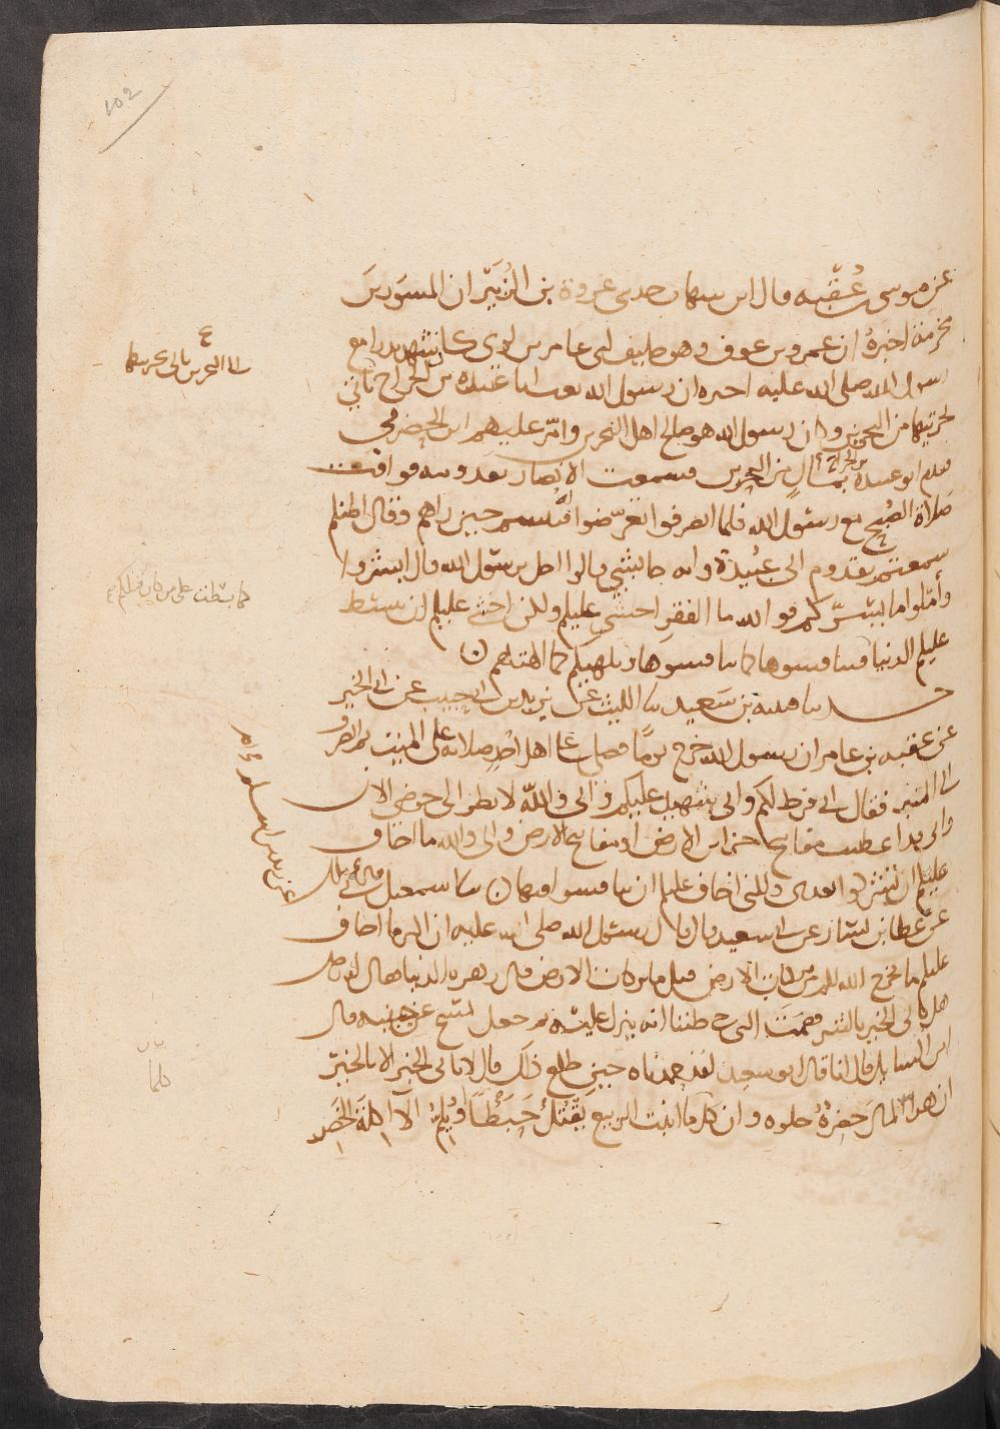 عن موسى بن عُقْبه قال ابن شهاب حدثنى عروة بن الزُبَيْر ان المسوَر بنَ
مخرمَة اخبرهُ ان عمرو بن عوف وهو حليف لبنى عامر بن لوى كان شهد بدرا مع
رسول الله صلى الله عليه اخبره ان رسول الله بعث ابا عبيدة بن الجراح ياتى
بجزيتها من البحرين وكان رسول الله هو صالح اهل البحرين وامّر عليهم ابن الحضرمي
فقدم ابو عبيدة بن الجراح بمالٍ من البحرين فسمعت الانصار بقدومه فوافت
صَلاة الصُبح مع رسُول الله فلما انصرفوا تعرّضوا له فتبسم حين راهم وقال اظنكم
سمعتم بقدوم ابى عُبيدة وانه جا بشئ قالوا اجل يرسُول الله قال ابشروا
وأمّلوا ما يسرّكم فو الله ما الفقرَ اخشى عليكم ولكن اخشى عليكم ان تبسط
عليكم الدنيا فتنافسوها كما تنافسوها وتلهيكم كما الهتهم
حدثنا قتيبة بن سَعيد نا الليث عن يزيد بن ابى حبيب عن ابى الخير
عن عقبه بن عامر ان رسول الله خرج يومًا فصلى على اهل اُحُدٍ صلاته على الميت ثم انصرف
الى المنبر فقال انى فرط لكم وانى شهيد عليكم وانى والله لانظر الى حوضى الان
وانى قد اعطيت مفاتيح خزاين الارض او مفاتيح الارض وانى والله ما اخاف
عليكم ان تشركوا بعدى ولكنى اخاف عليكم ان تنافسوا فيها نا اسمعيل قال نى ملك
عن زيد بن اسلم
عن عطا بن يسار عن ابى سعيد قال قال رسول الله صلى الله عليه ان اكثر ما اخاف
عليكم ما يخرج الله لكم من بركات الارض قيل ما بركات الارض قال زهرة الدنيا فقال له رجل
هل ياتى الخير بالشر فصَمَت النبى حتى ظننا انه ينزل عليه ثم جعل يمسح عن جبينه قال
اين السايل قال انا قال ابو سعيد لقد حمدناه حين طلع ذلك قال لا ياتى الخير الا بالخير
ان هذا المالَ خَضِرَةٌ حلوه وان كل ما انبت الربيع يَقْتُلُ حَبَطًا او يُلِمُّ الّا اكلَةَ الخَضِر